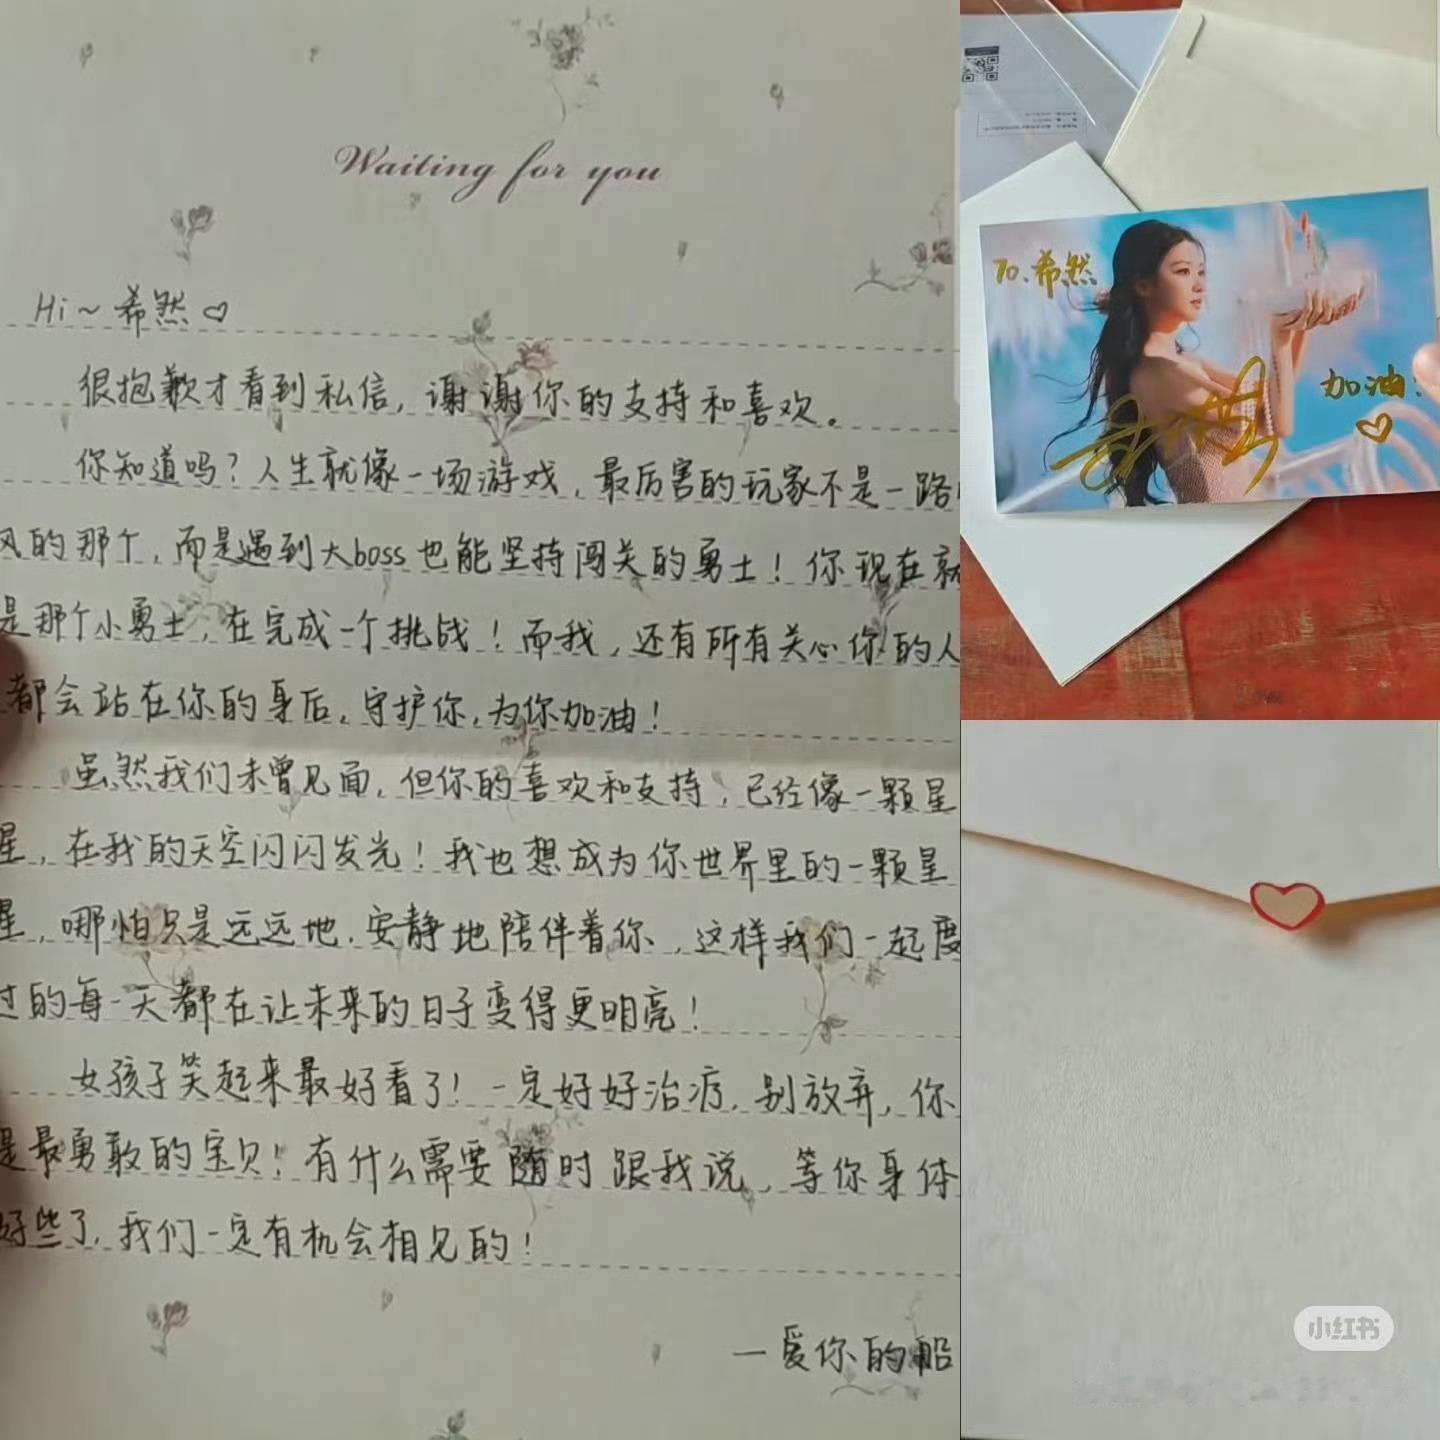 Waiting for you
Hi~希然♡
很抱歉才看到私信，谢谢你的支持和喜欢。
你知道吗？人生就像一场游戏，最厉害的玩家不是一路
风的那个，而是遇到大boss也能坚持闯关的勇士！你现在就
是那个小勇士，在完成一个挑战！而我，还有所有关心你的人
都会站在你的身后，守护你，为你加油！
虽然我们未曾见面，但你的喜欢和支持，已经像一颗星
星，在我的天空闪闪发光！我也想成为你世界里的一颗星
星，哪怕只是远远地，安静地陪伴着你，这样我们一起度
过的每一天都在让未来的日子变得更明亮！
女孩子笑起来最好看了！一定好好治疗，别放弃，你
是最勇敢的宝贝！有什么需要随时跟我说，等你身体
好些了，我们一定有机会相见的！
—爱你的船
TO.希然
加油！
♡
小红书